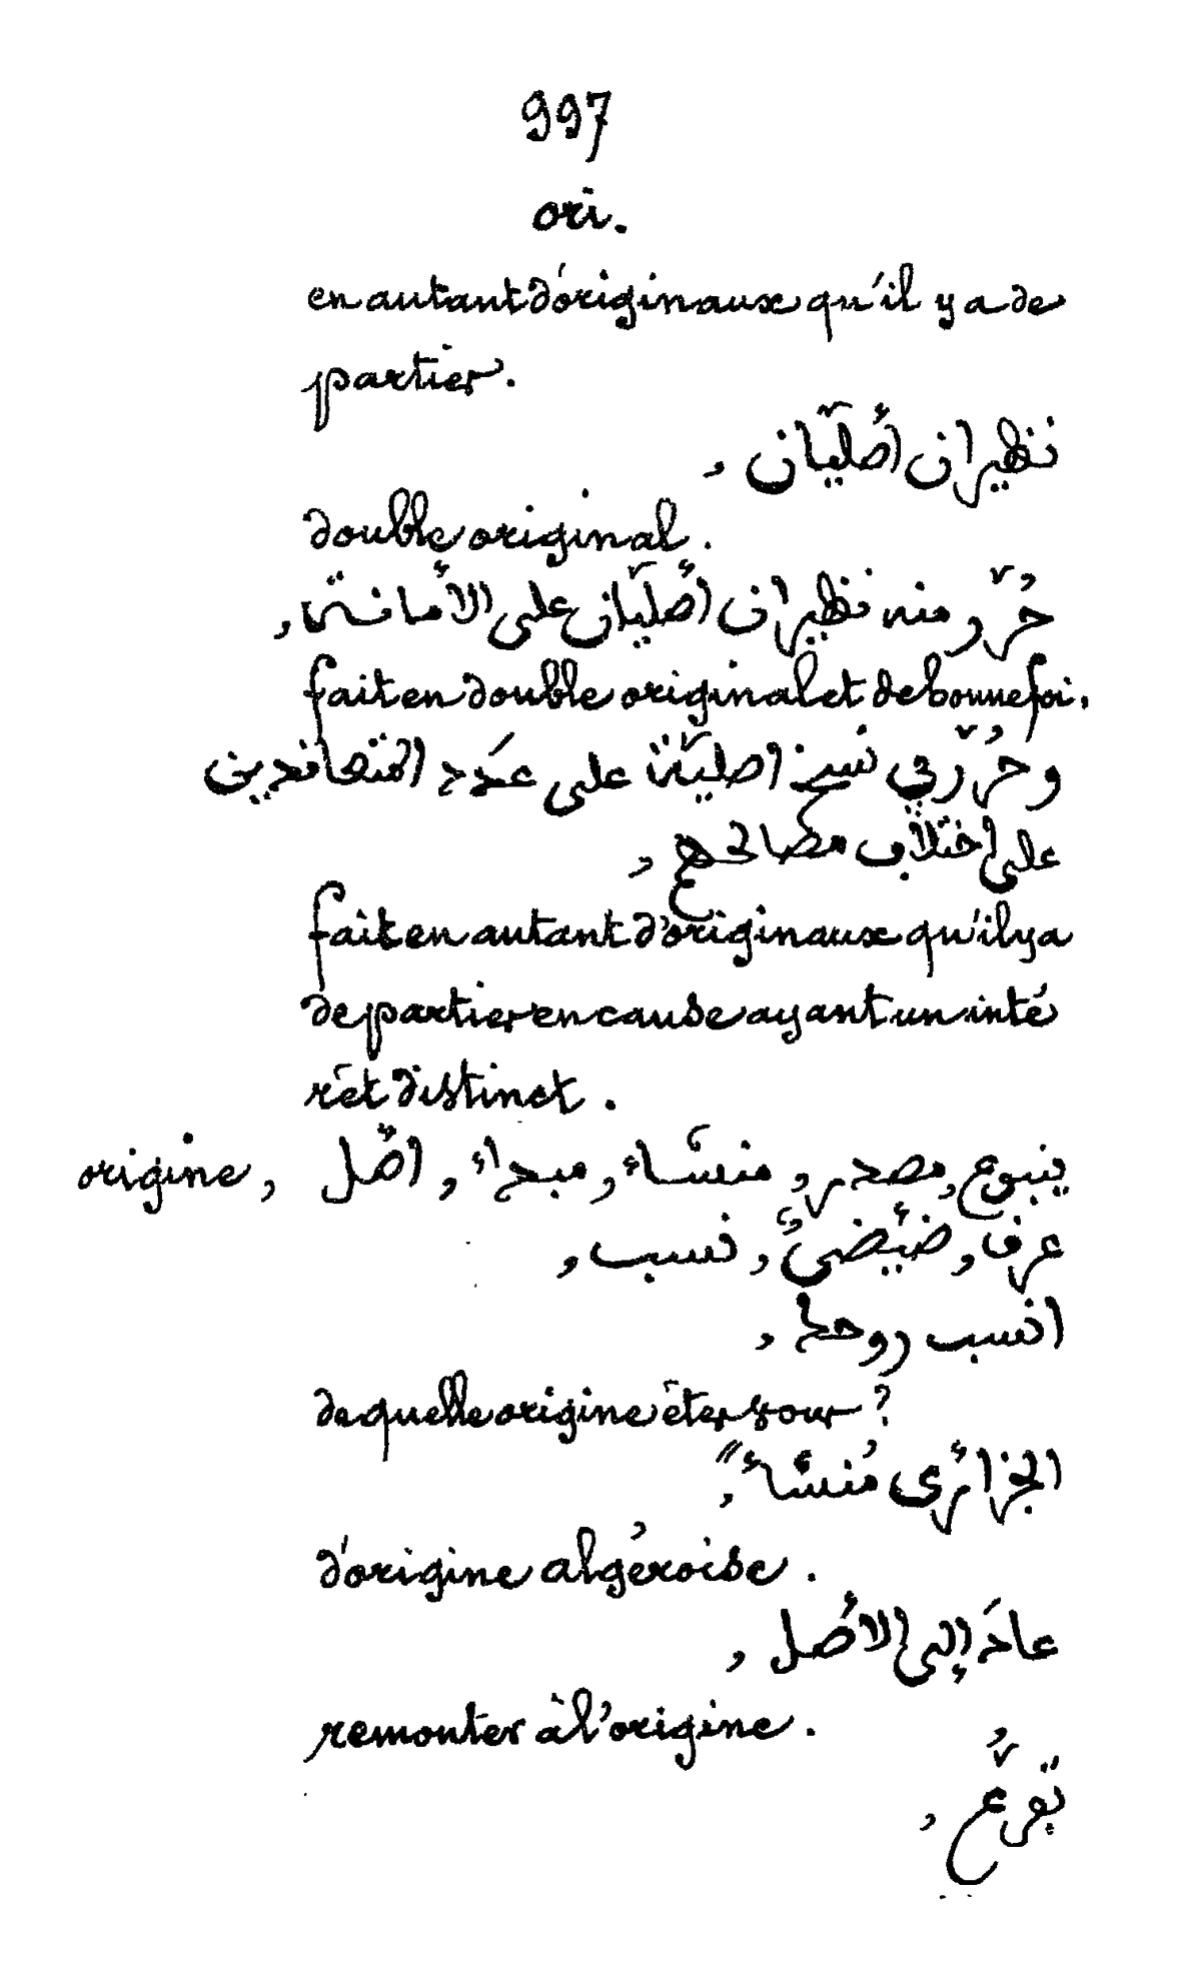 997
ori.
en autant d'originaux qu'il y a de
parties.
نظيران أصليّان ,
double original.
حُرّر منه نظيران أصليّان على الأمانة ,
fait en double original et de bonne foi.
وحُرّر في نسخ اصليّة على عَدَد المتعاقدين
على اختلاف مصالحهم ,
fait en autant d'originaux qu'il y a
de parties en cause ayant un inté
rêt distinct.
origine, اصْل , مبداء , منشاء , مصدر , ينبوع
عرق , ضئضئ , نسب ,
انسب روحك ,
de quelle origine êtes vous ?
الجزائرى مُنشأً ,
d'origine algéroise.
عادَ إلى الأصل ,
remonter à l'origine.
تفرّع ,